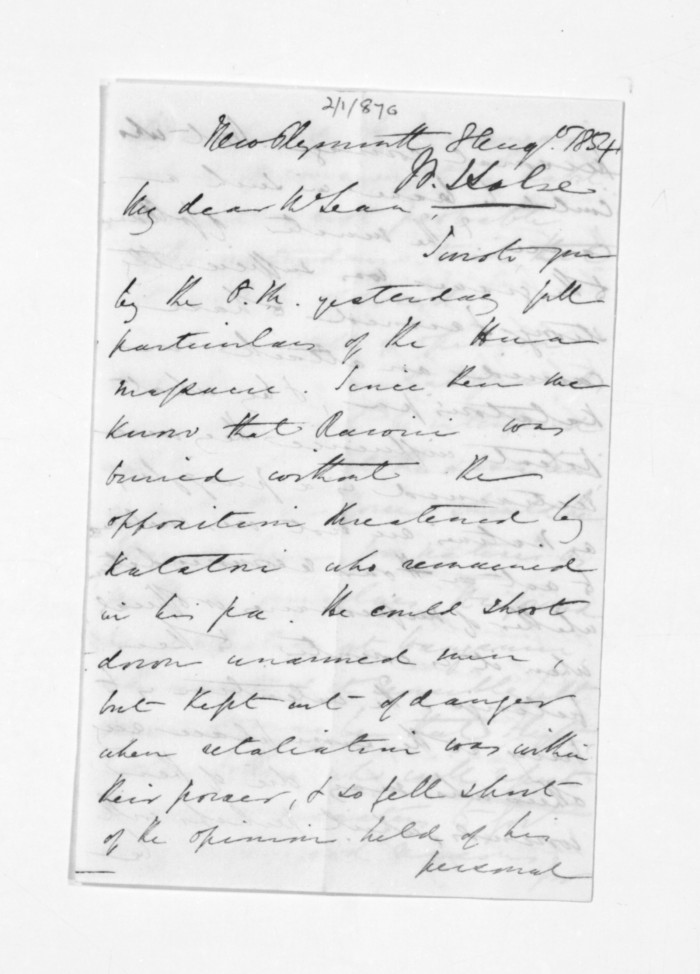 2/1/870
New Plymouth, 8 Aug.t 1854
W. Halse
My dear McLean,
I wrote you
by the O.M. yesterday full
particulars of the Hua
massacre. Since then we
know that Rawiri was
buried without the
opposition threatened by
Katatori who remained
in his pa. He could shoot
down unarmed men,
but kept out of danger
when retaliation was within
their power, & so fell short
of the opinion held of his
personal